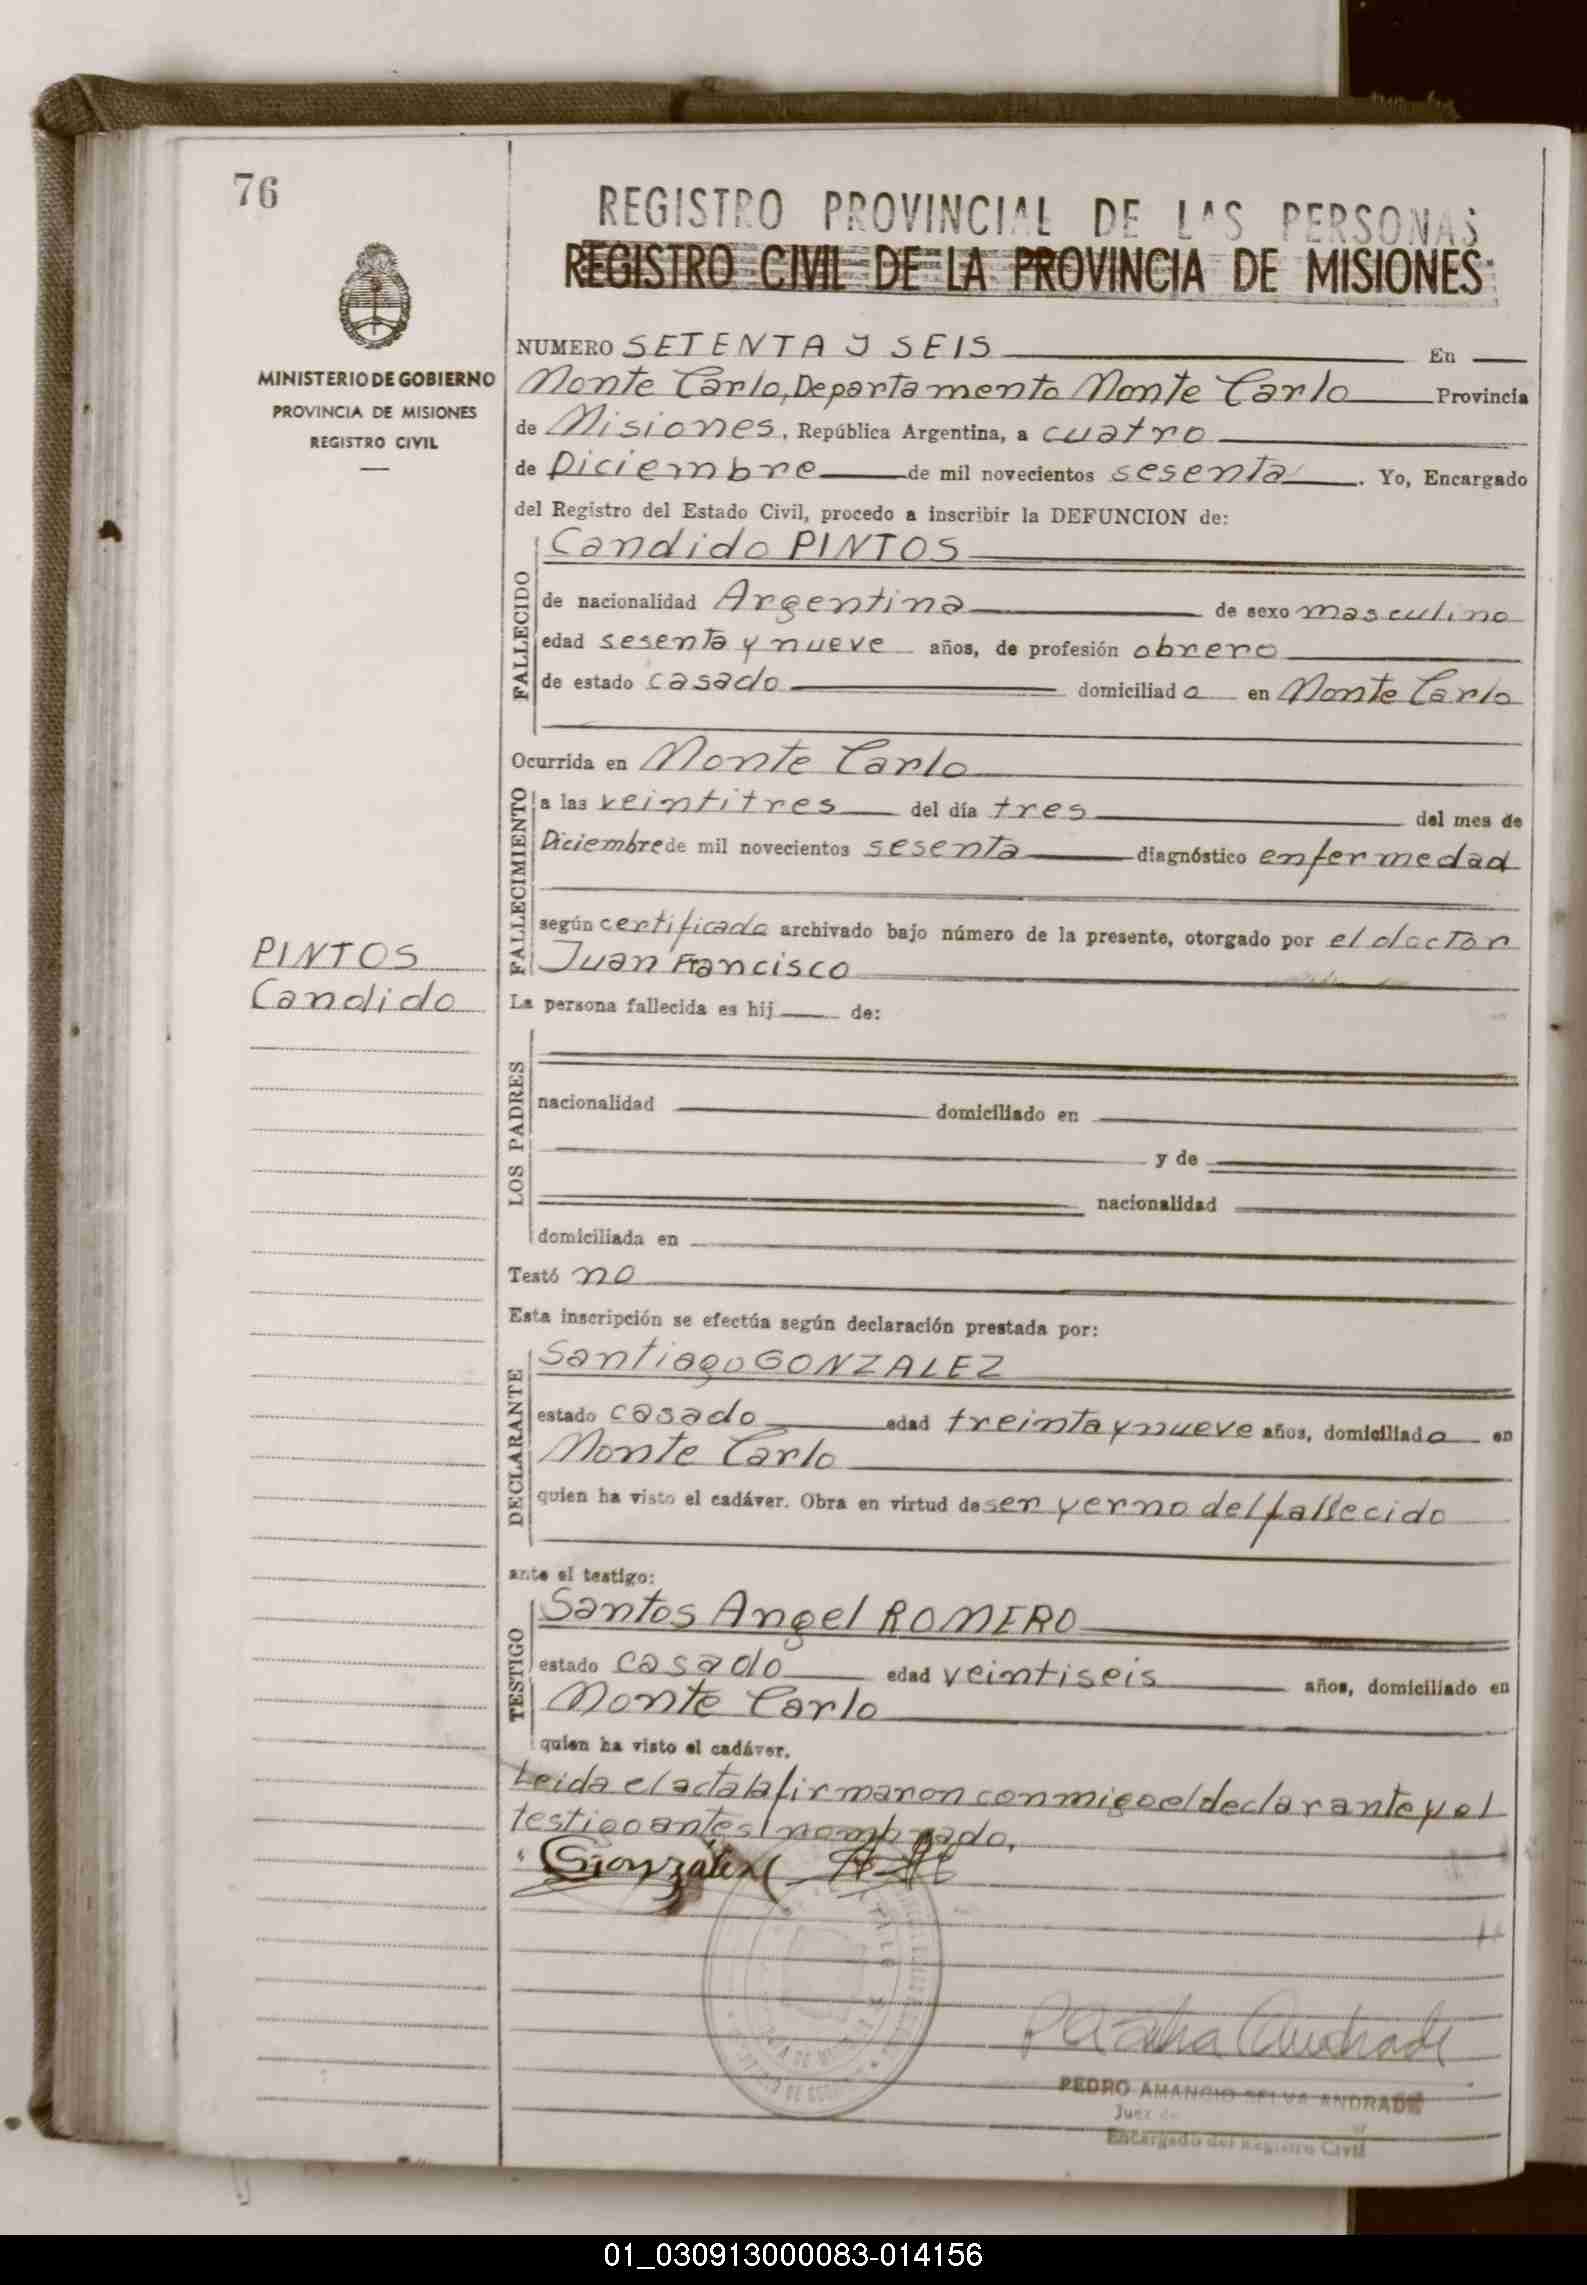 76
REGISTRO PROVINCIAL DE LAS PERSONAS
REGISTRO CIVIL DE LA PROVINCIA DE MISIONES
MINISTERIO DE GOBIERNO
PROVINCIA DE MISIONES
REGISTRO CIVIL
NUMERO SETENTA Y SEIS En
Monte Carlo, Departamento Monte Carlo Provincia
de Misiones, República Argentina, a cuatro
de Diciembre de mil novecientos sesenta. Yo, Encargado
del Registro del Estado Civil, procedo a inscribir la DEFUNCION de:
FALLECIDO
Candido PINTOS
de nacionalidad Argentina de sexo masculino
edad sesenta y nueve años, de profesión obrero
de estado casado domiciliado en Monte Carlo
Ocurrida en Monte Carlo
FALLECIMIENTO
a las veintitres del día tres del mes de
Diciembre de mil novecientos sesenta diagnóstico enfermedad
según certificado archivado bajo número de la presente, otorgado por el doctor
Juan Francisco
PINTOS
Candido
La persona fallecida es hij de:
LOS PADRES
nacionalidad domiciliado en
y de
nacionalidad
domiciliada en
Testó no
Esta inscripción se efectúa según declaración prestada por:
DECLARANTE
Santiago GONZALEZ
estado casado edad treinta y nueve años, domiciliado en
Monte Carlo
quien ha visto el cadáver. Obra en virtud de ser yerno del fallecido
ante el testigo:
TESTIGO
Santos Angel ROMERO
estado casado edad veintiseis años, domiciliado en
Monte Carlo
quien ha visto el cadáver.
Leida el acta la firmaron conmigo el declarante y el
testigo antes nombrado.
González
PEDRO AMANCIO SELVA ANDRADE
Juez de
Encargado del Registro Civil
01_030913000083-014156